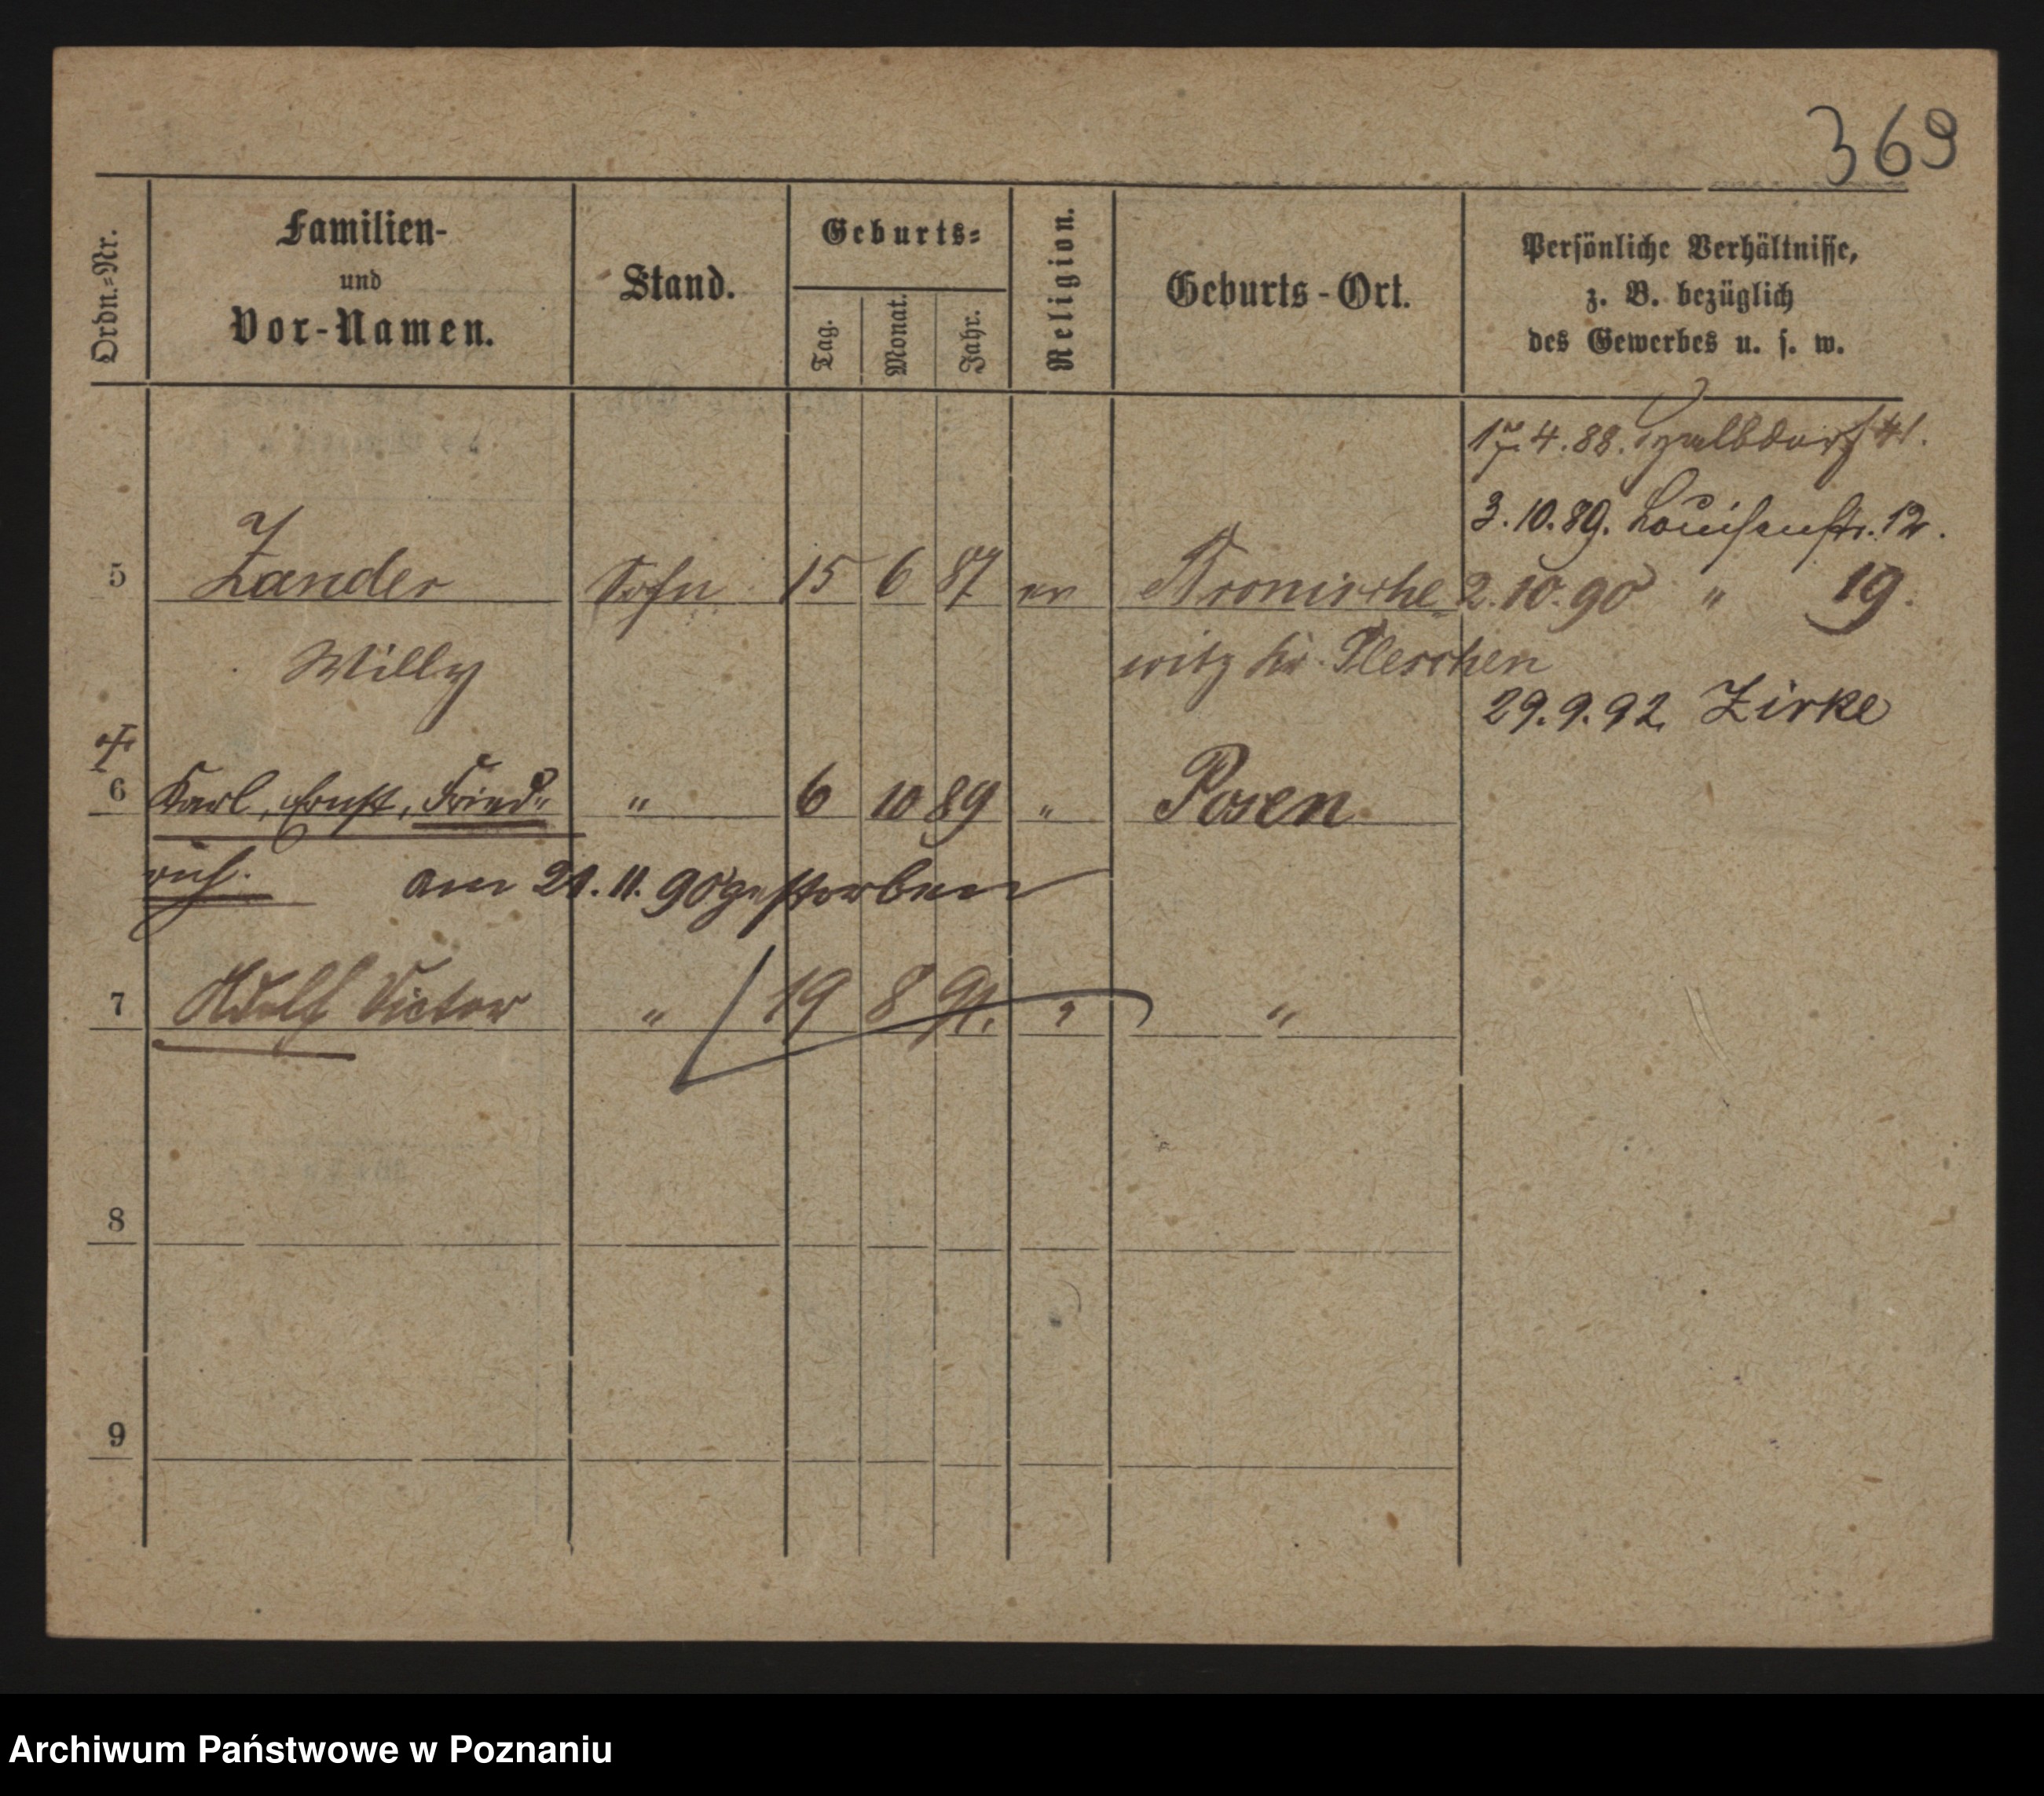 369
Ordn.=Nr.
Familien-
und
Vor-Namen.
Stand.
Geburts=
Tag.
Monat.
Jahr.
Religion.
Geburts-Ort.
Persönliche Verhältnisse,
z. B. bezüglich
des Gewerbes u. s. w.
17.4.88.
3.10.89. Louisenstr. 12.
5 Zander Sohn 15 6 87 ev Bronische 2.10.90 " 19.
Willy witz Kr. Pleschen
29.9.92 Zirke
6 Karl, Ernst, Fried= " 6 10 89 " Posen
rich. am 21.11.90 gestorben
7 Adolf Victor " 19 8 91. " "
8
9
Archiwum Państwowe w Poznaniu